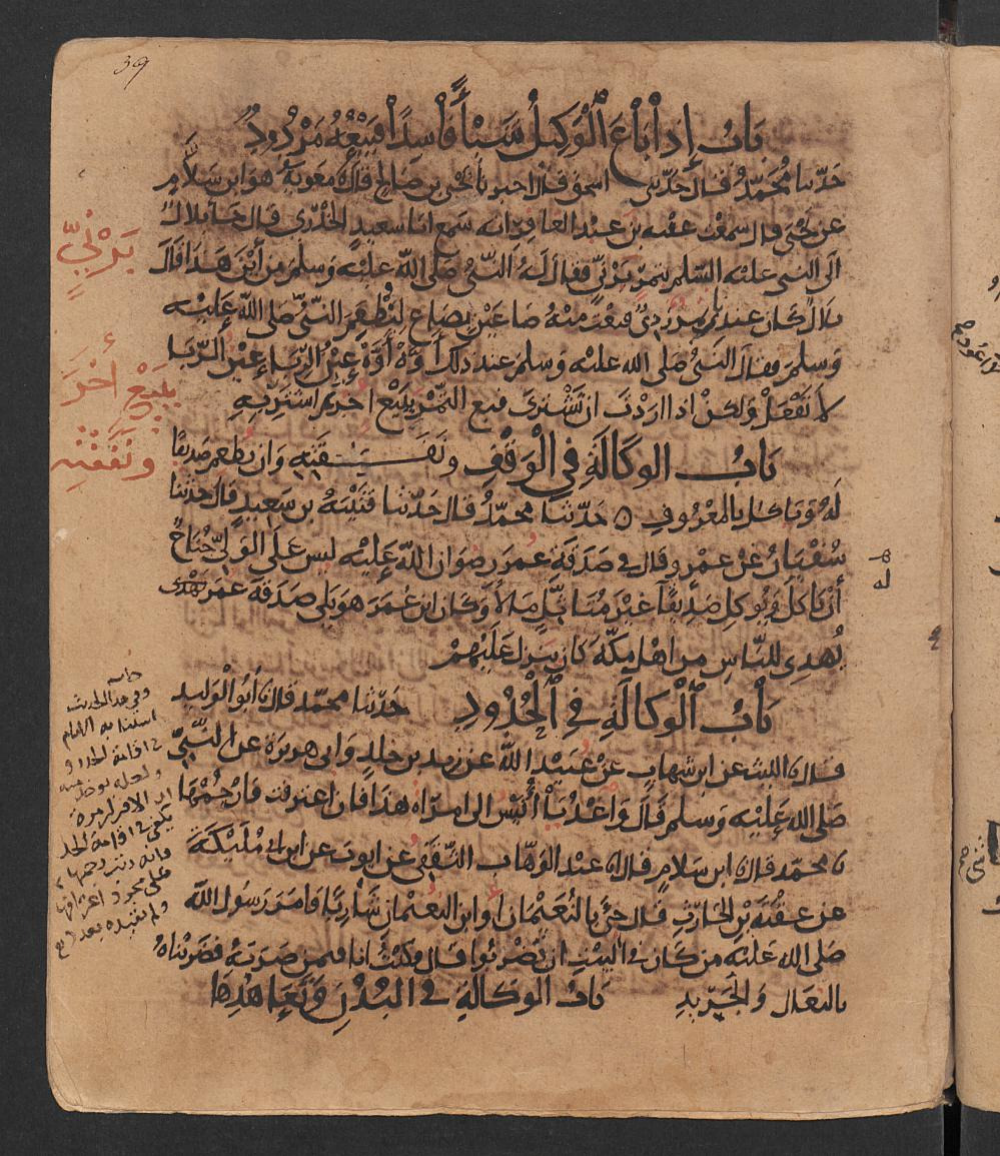 39
باب إذا باع الوكيل شيئا فاسدا فبيعه مردود
حدثنا محمد قال حدثني اسحق قال اخبرنا يحيى بن صالح قال نا معوية هو ابن سلام
عن يحيى قال سمعت عقبه بن عبد الغافر انه سمع ابا سعيد الخدري قال جا بلال
الى النبي عليه السلم بتمر برني فقال له النبي صلى الله عليه وسلم من أين هذا قال
بلال كان عندنا تمر ردي فبعت منه صاعين بصاع لنطعم النبي صلى الله عليه
وسلم فقال النبي صلى الله عليه وسلم عند ذلك أوه أوه عين الربا عين الربا
لا تفعل ولكن اذا اردت ان تشتري فبع التمر ببيع اخر ثم اشتر به
باب الوكالة في الوقف ونفقته وان يطعم صديقا
له وياكل بالمعروف ه حدثنا محمد قال حدثنا قتيبة بن سعيد قال حدثنا
سفيان عن عمرو قال في صدقة عمر رضوان الله عليه ليس على الولي جناح
أن ياكل ويوكل صديقا غير متاثل مالا وكان ابن عمر هو يلي صدقة عمر يهدي
يهدي للناس من اهل مكة كان ينزل عليهم
باب الوكالة في الحدود حدثنا محمد قال نا أبو الوليد
قال نا الليث عن ابن شهاب عن عبيد الله عن زيد بن خلد وابي هريرة عن النبي
صلى الله عليه وسلم قال واغد يا أنيس الى امراه هذا فان اعترفت فارجمها
نا محمد قال نا ابن سلام قال نا عبد الوهاب الثقفي عن ايوب عن ابن ابي مليكة
عن عقبة بن الحارث قال جئ بالنعيمان او ابن النعيمان شاربا فامر رسول الله
صلى الله عليه من كان في البيت ان يضربوا قال فكنت انا فيمن ضربه فضربناه
بالنعال والجريد باب الوكالة في البدن وتعاهدها
برني
ببيع أخر
ونفقته
وفي هذا الحديث
استنابه الامام
في اقامة الحدود
ولعله يوخذ منه
ان الاقرار مرة
يكفي في اقامة الحد